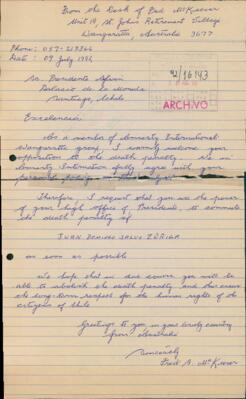 From the Desk of Fred McKeever
Unit 19, St John's Retirement Village
Wangaratta, Australia 3677
Phone: 057-219366
Date: 09 July 1992
92/16143
ARCHIVO
Sr. Presidente Aylwin
Palacio de la Moneda
Santiago, Chile
Excelencia:
As a member of Amnesty International
Wangaratta group, I warmly welcome your
opposition to the death penalty. We in
Amnesty International fully agree with your
Therefore, I request that you use the power
of your high office of President, to commute
the death penalty of
JUAN DOMINGO SALVO ZUÑIGA
as soon as possible
We hope that in due course you will be
able to abolish the death penalty and thus ensure
the long-term respect for the human rights of the
citizens of Chile.
Greetings to you in your lovely country
from Australia
Sincerely
Fred A. McKeever